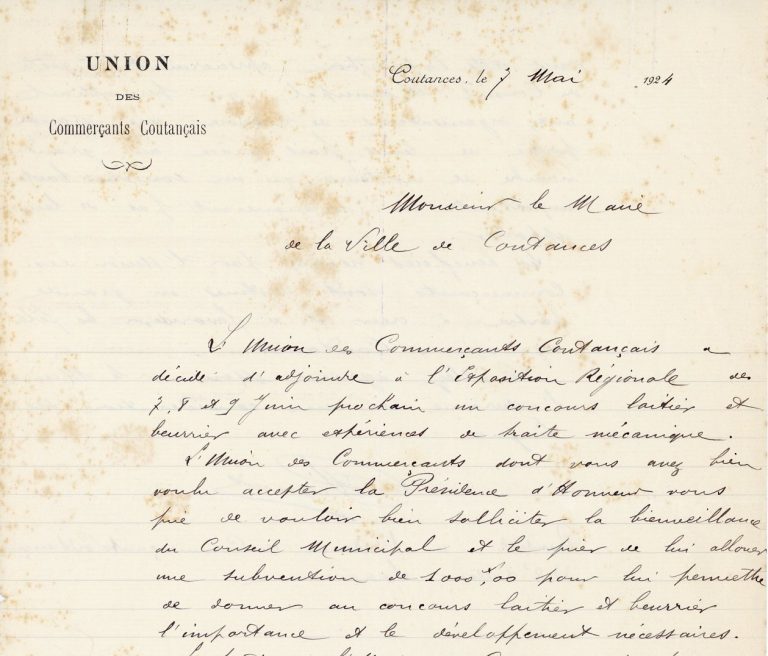 UNION
DES
Commerçants Coutançais
Coutances, le 7 Mai 1924
Monsieur le Maire
de la Ville de Coutances
L'Union des Commerçants Coutançais a
décidé d'adjoindre à l'Exposition Régionale des
7, 8 et 9 Juin prochain un concours laitier et
beurrier avec expériences de traite mécanique.
L'Union des Commerçants dont vous avez bien
voulu accepter la Présidence d'Honneur vous
prie de vouloir bien solliciter la bienveillance
du Conseil Municipal et le prier de lui allouer
une subvention de 1000f,00 pour lui permettre
de donner au concours laitier et beurrier
l'importance et le développement nécessaires.